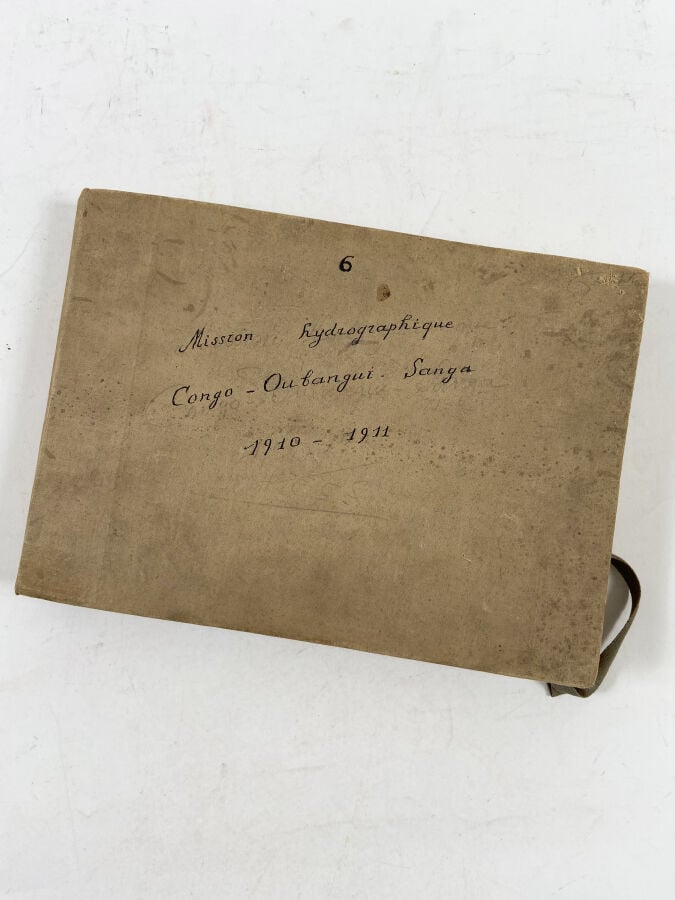 6
Mission hydrographique
Congo - Oubangui - Sanga
1910 - 1911